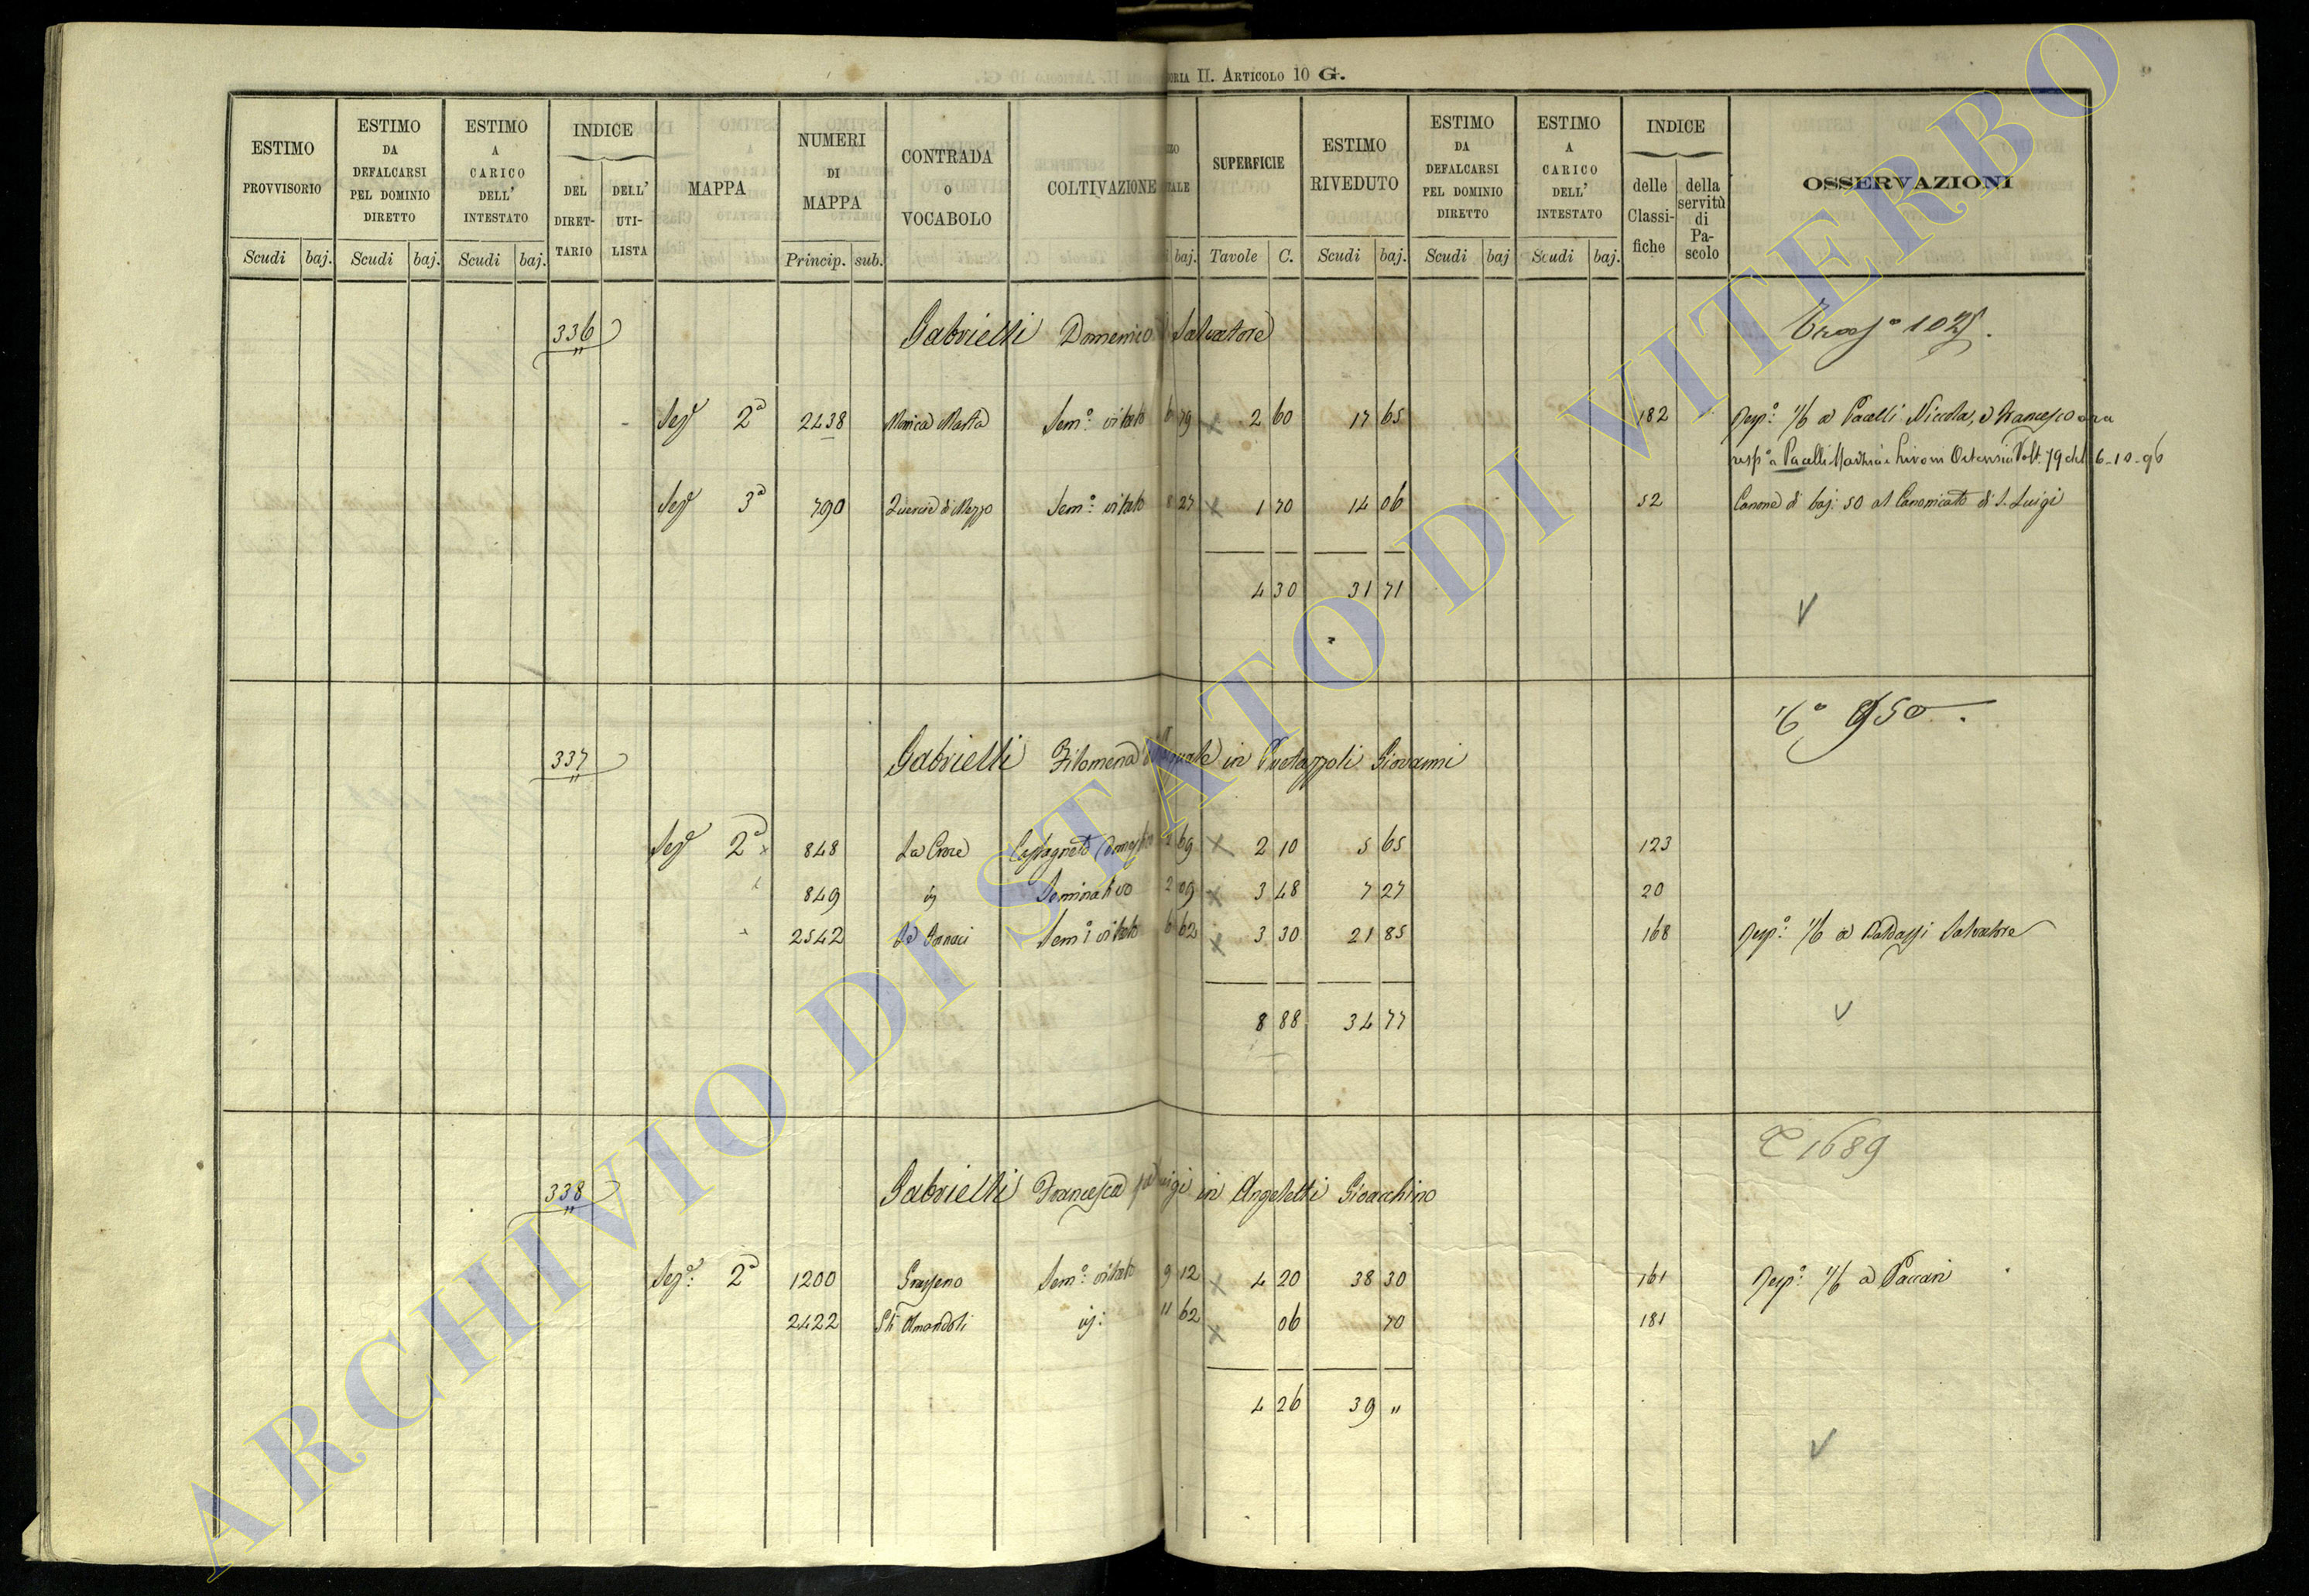 ORIA II. ARTICOLO 10 G.
ESTIMO PROVVISORIO
ESTIMO DA DEFALCARSI PEL DOMINIO DIRETTO
ESTIMO A CARICO DELL' INTESTATO
INDICE
DEL DIRET-TARIO
DELL' UTI-LISTA
MAPPA
NUMERI DI MAPPA
CONTRADA O VOCABOLO
COLTIVAZIONE
TALE
SUPERFICIE
ESTIMO RIVEDUTO
ESTIMO DA DEFALCARSI PEL DOMINIO DIRETTO
ESTIMO A CARICO DELL' INTESTATO
INDICE
delle Classi-fiche
della servitù di Pa-scolo
OSSERVAZIONI
Scudi baj. Scudi baj. Scudi baj. Princip. sub. baj. Tavole C. Scudi baj. Scudi baj Scudi baj.
336 Gabrielli Domenico Salvatore
1025.
Sez.e 2a 2438 Sem.o vitato 6 79 x 2 60 17 65 182 Resp.o a Pacelli Niccola, e Francesco ora
resp.o a Pacelli 79 del 6-10-96
Sez.e 3a 790 di Mezzo Sem.o vitato 8 27 x 1 70 14 06 52 Canone di baj: 50 al Canonicato di S. Luigi
4 30 31 71
V
950.
337 Gabrielli Filomena in Giovanni
Sez.e 2a 848 La Croce Castagneto 2 69 x 2 10 5 65 123
849 Seminativo 2 09 x 3 48 7 27 20
2542 Sem.o vitato 6 62 x 3 30 21 85 168 Resp.o a Baldassi Salvatore
8 88 34 77
V
1689
338 Gabrielli Francesca in Angeletti Gioacchino
Sez.e 2a 1200 Sem.o vitato 9 12 x 4 20 38 30 161 Resp.o a Paccari
2422 Amandoli 11 62 x 06 70 181
4 26 39 "
V
ARCHIVIO DI STATO DI VITERBO